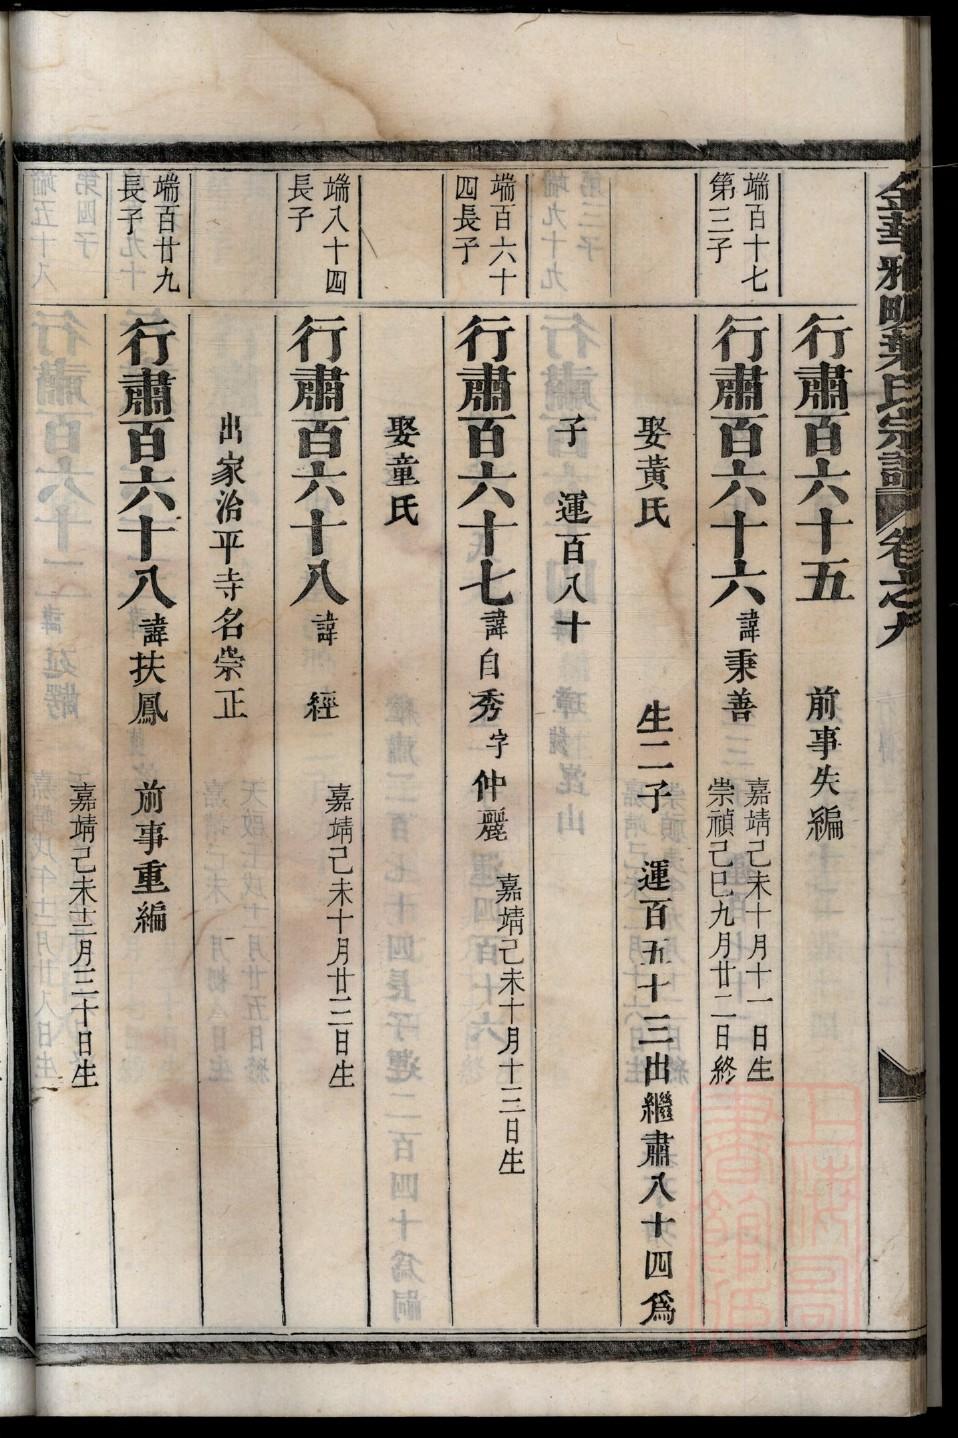 金華雅畈葉氏宗譜 卷之九
行肅百六十五 前事失編
端百十七
第三子
行肅百六十六 諱秉善
嘉靖己未十月十一日生
崇禎己巳九月廿二日終
娶黃氏 生二子 運百五十三出繼肅八十四為
子 運百八十
端百六十
四長子
行肅百六十七 諱自秀 字仲麗
嘉靖己未十月十三日生
娶童氏
端八十四
長子
行肅百六十八 諱經
嘉靖己未十月廿三日生
出家治平寺名崇正
端百廿九
長子
行肅百六十八 諱扶鳳 前事重編
嘉靖己未十二月三十日生